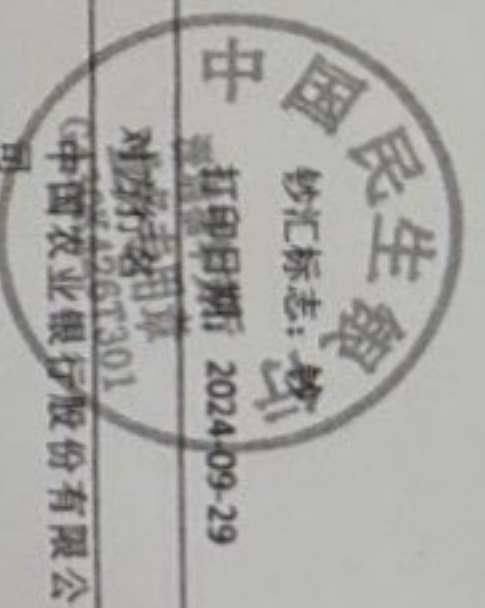 中国民生银行
钞汇标志：钞
打印日期：2024-09-29
对方行名
中国农业银行股份有限公
司